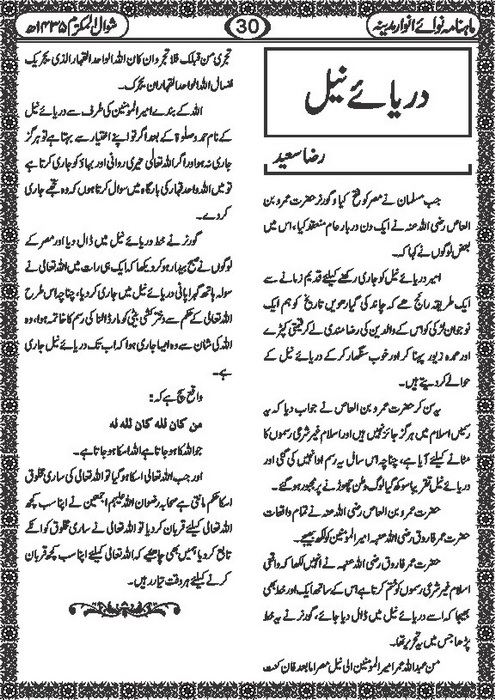 ماہنامہ نوائے انوار مدینہ
30
شوال المکرم ۱۴۳۵ھ
دریائے نیل
رضا سعید
جب مسلمان نے مصر کو فتح کیا و گورنر حضرت عمرو بن
العاص رضی اللہ عنہ نے ایک دن دربار عام منعقد کیا، اس میں
بعض لوگوں نے کہا کہ۔
امیر دریائے نیل کو جاری رکھنے کیلئے قدیم زمانے سے
ایک طریقہ رائج ھے کہ چاند کی گیارھویں تاریخ کو ہم ایک
نوجوان لڑکی کو اس کے والدین کی رضا مندی لے کر قیمتی کپڑے
اور عمدہ زیور پہنا کر اور خوب سنگھار کر کے دریائے نیل کے
حوالے کر دیتے ہیں۔
یہ سن کر حضرت عمرو بن العاص نے جواب دیا کہ یہ
رسمیں اسلام میں ہرگز جائز نہیں ہیں اور اسلام غیر شرعی رسموں کا
مٹانے کیلئے آیا ہے، چنانچہ اس سال یہ رسم ادا نہیں کی گئی اور
دریائے نیل تقریبا سوکھ گیا لوگ وطن چھوڑنے پر مجبور ہو گئے۔
حضرت عمرو بن العاص رضی اللہ عنہ نے تمام واقعات
حضرت عمر فاروق رضی اللہ عنہ امیر المؤمنین کو لکھ بھیجے۔
حضرت عمر فاروق رضی اللہ عنہ نے انہیں لکھا کہ واقعی
اسلام غیر شرعی رسموں کو ختم کرتا ہے اس کے ساتھ ایک اور خط بھی
بھیجا کہ اسے دریائے نیل میں ڈال دیا جائے، گورنر نے یہ خط
پڑھا جس میں یہ تحریر تھا۔
من عبداللہ عمر امیر المؤمنین الی نیل مصر اما بعد فان کنت
تجری من قبلک فلا تجر وان کان اللہ الواحد القھار الذی یجریک
فنسال اللہ الواحد القھار ان یجرک۔
اللہ کے بندے امیر المؤمنین کی طرف سے دریائے نیل
کے نام حمد و صلوۃ کے بعد اگر تو اپنے اختیار سے بہتا ہے تو ہرگز
جاری نہ ہو اور اگر اللہ تعالی تیری روانی اور بہاؤ کو جاری کرتا ہے
تو میں اللہ واحد قہار کی بارگاہ میں سوال کرتا ہوں کہ وہ تجھے جاری
کر دے۔
گورنر نے خط دریائے نیل میں ڈال دیا اور مصر کے
لوگوں نے صبح بیدار ہو کر دیکھا کہ ایک ہی رات میں اللہ تعالی نے
سولہ ہاتھ گہرا پانی دریائے نیل میں جاری کر دیا، چنانچہ اس طرح
اللہ تعالی کے حکم سے دختر کشی بیٹی کو مار ڈالنا کی رسم کا خاتمہ ہوا، وہ
کی شان سے وہ ایسا جاری ہوا کہ اب تک دریائے نیل جاری
ہے۔
واقع سچ ہے کہ:
من كان لله كان لله له
جو اللہ کا ہو جاتا ہے اللہ اسکا ہو جاتا ہے۔
اور جب اللہ تعالی اسکا ہو گیا تو اللہ تعالی کی ساری مخلوق
اسکا حکم مانتی ہے صحابہ رضوان اللہ علیہم اجمعین نے اپنا سب کچھ
اللہ تعالی کیلئے قربان کر دیا تو اللہ تعالی نے ساری مخلوق کو انکے
تابع کر دیا ہمیں بھی چاہئیے کہ اللہ تعالی کیلئے اپنا سب کچھ قربان
کرنے کیلئے ہر وقت تیار رہیں۔